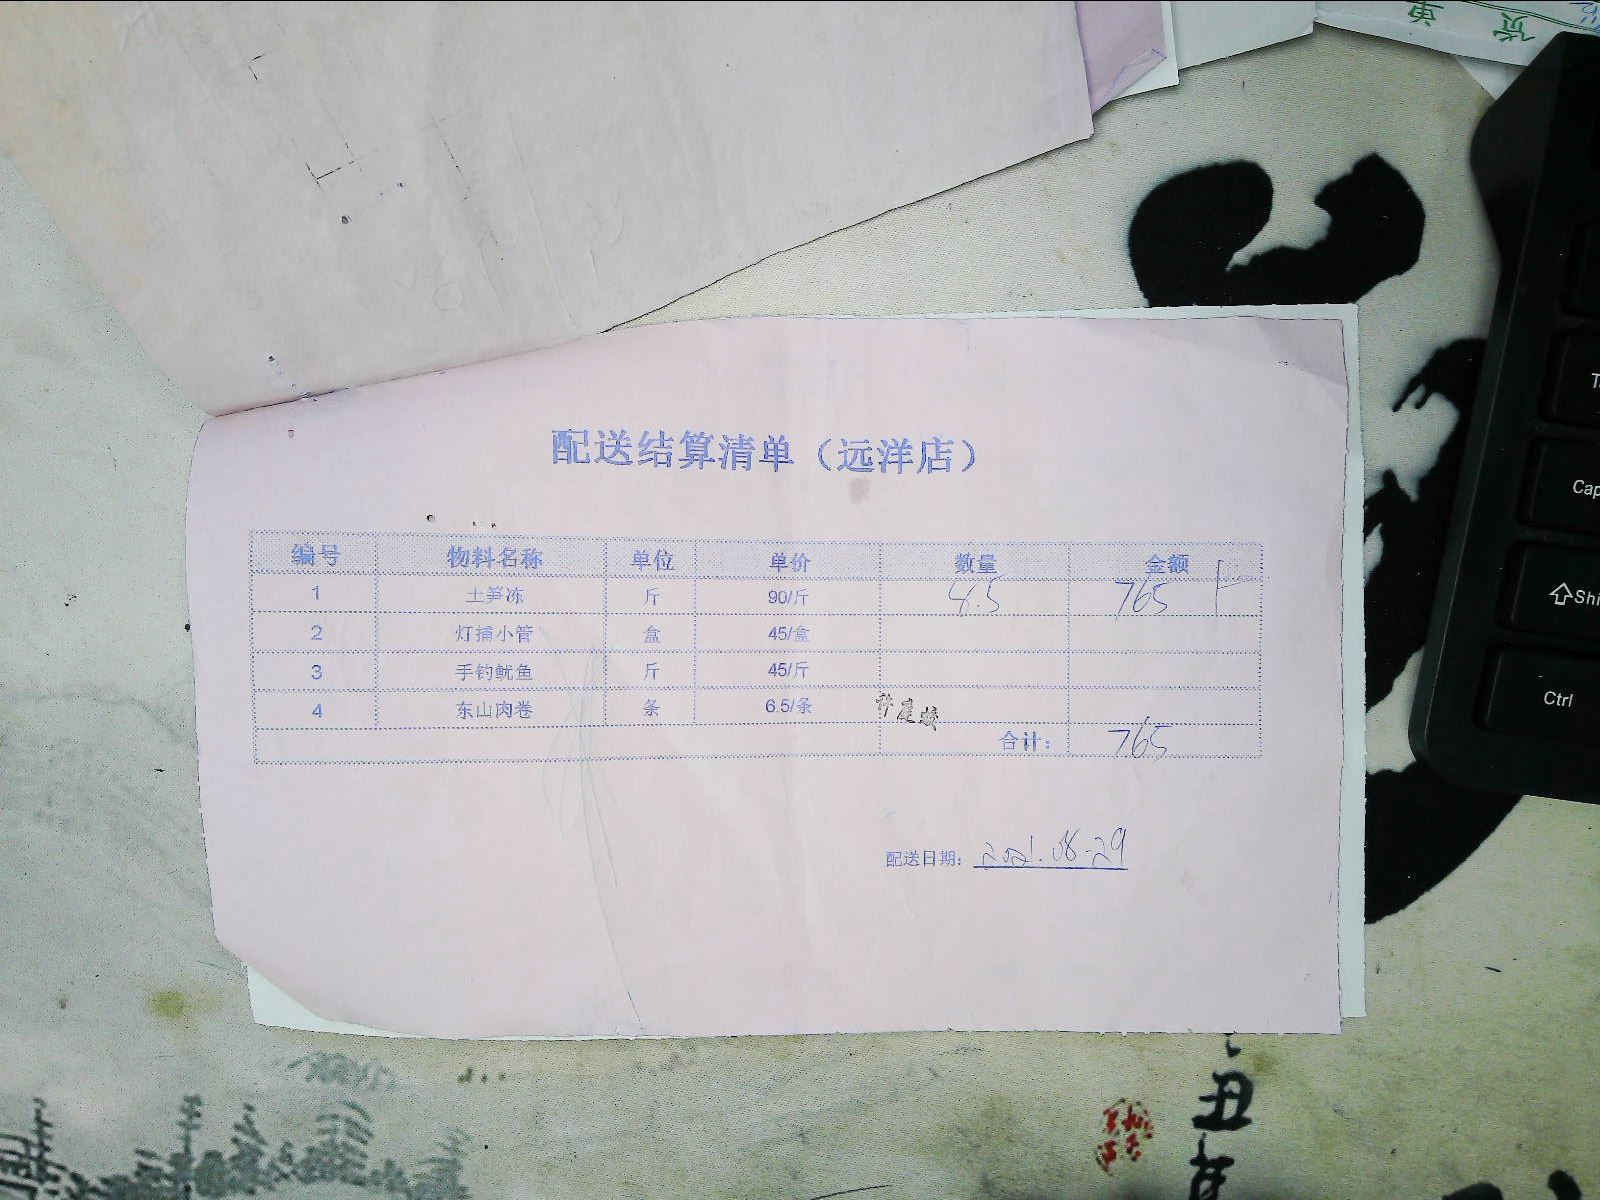 单 货
配送结算清单（远洋店）
编号 物料名称 单位 单价 数量 金额
1 土笋冻 斤 90/斤 8.5 765
2 灯捕小管 盒 45/盒
3 手钓鱿鱼 斤 45/斤
4 东山肉卷 条 6.5/条
合计： 765
配送日期： 2021.08-29
Cap
Shi
Ctrl
丑